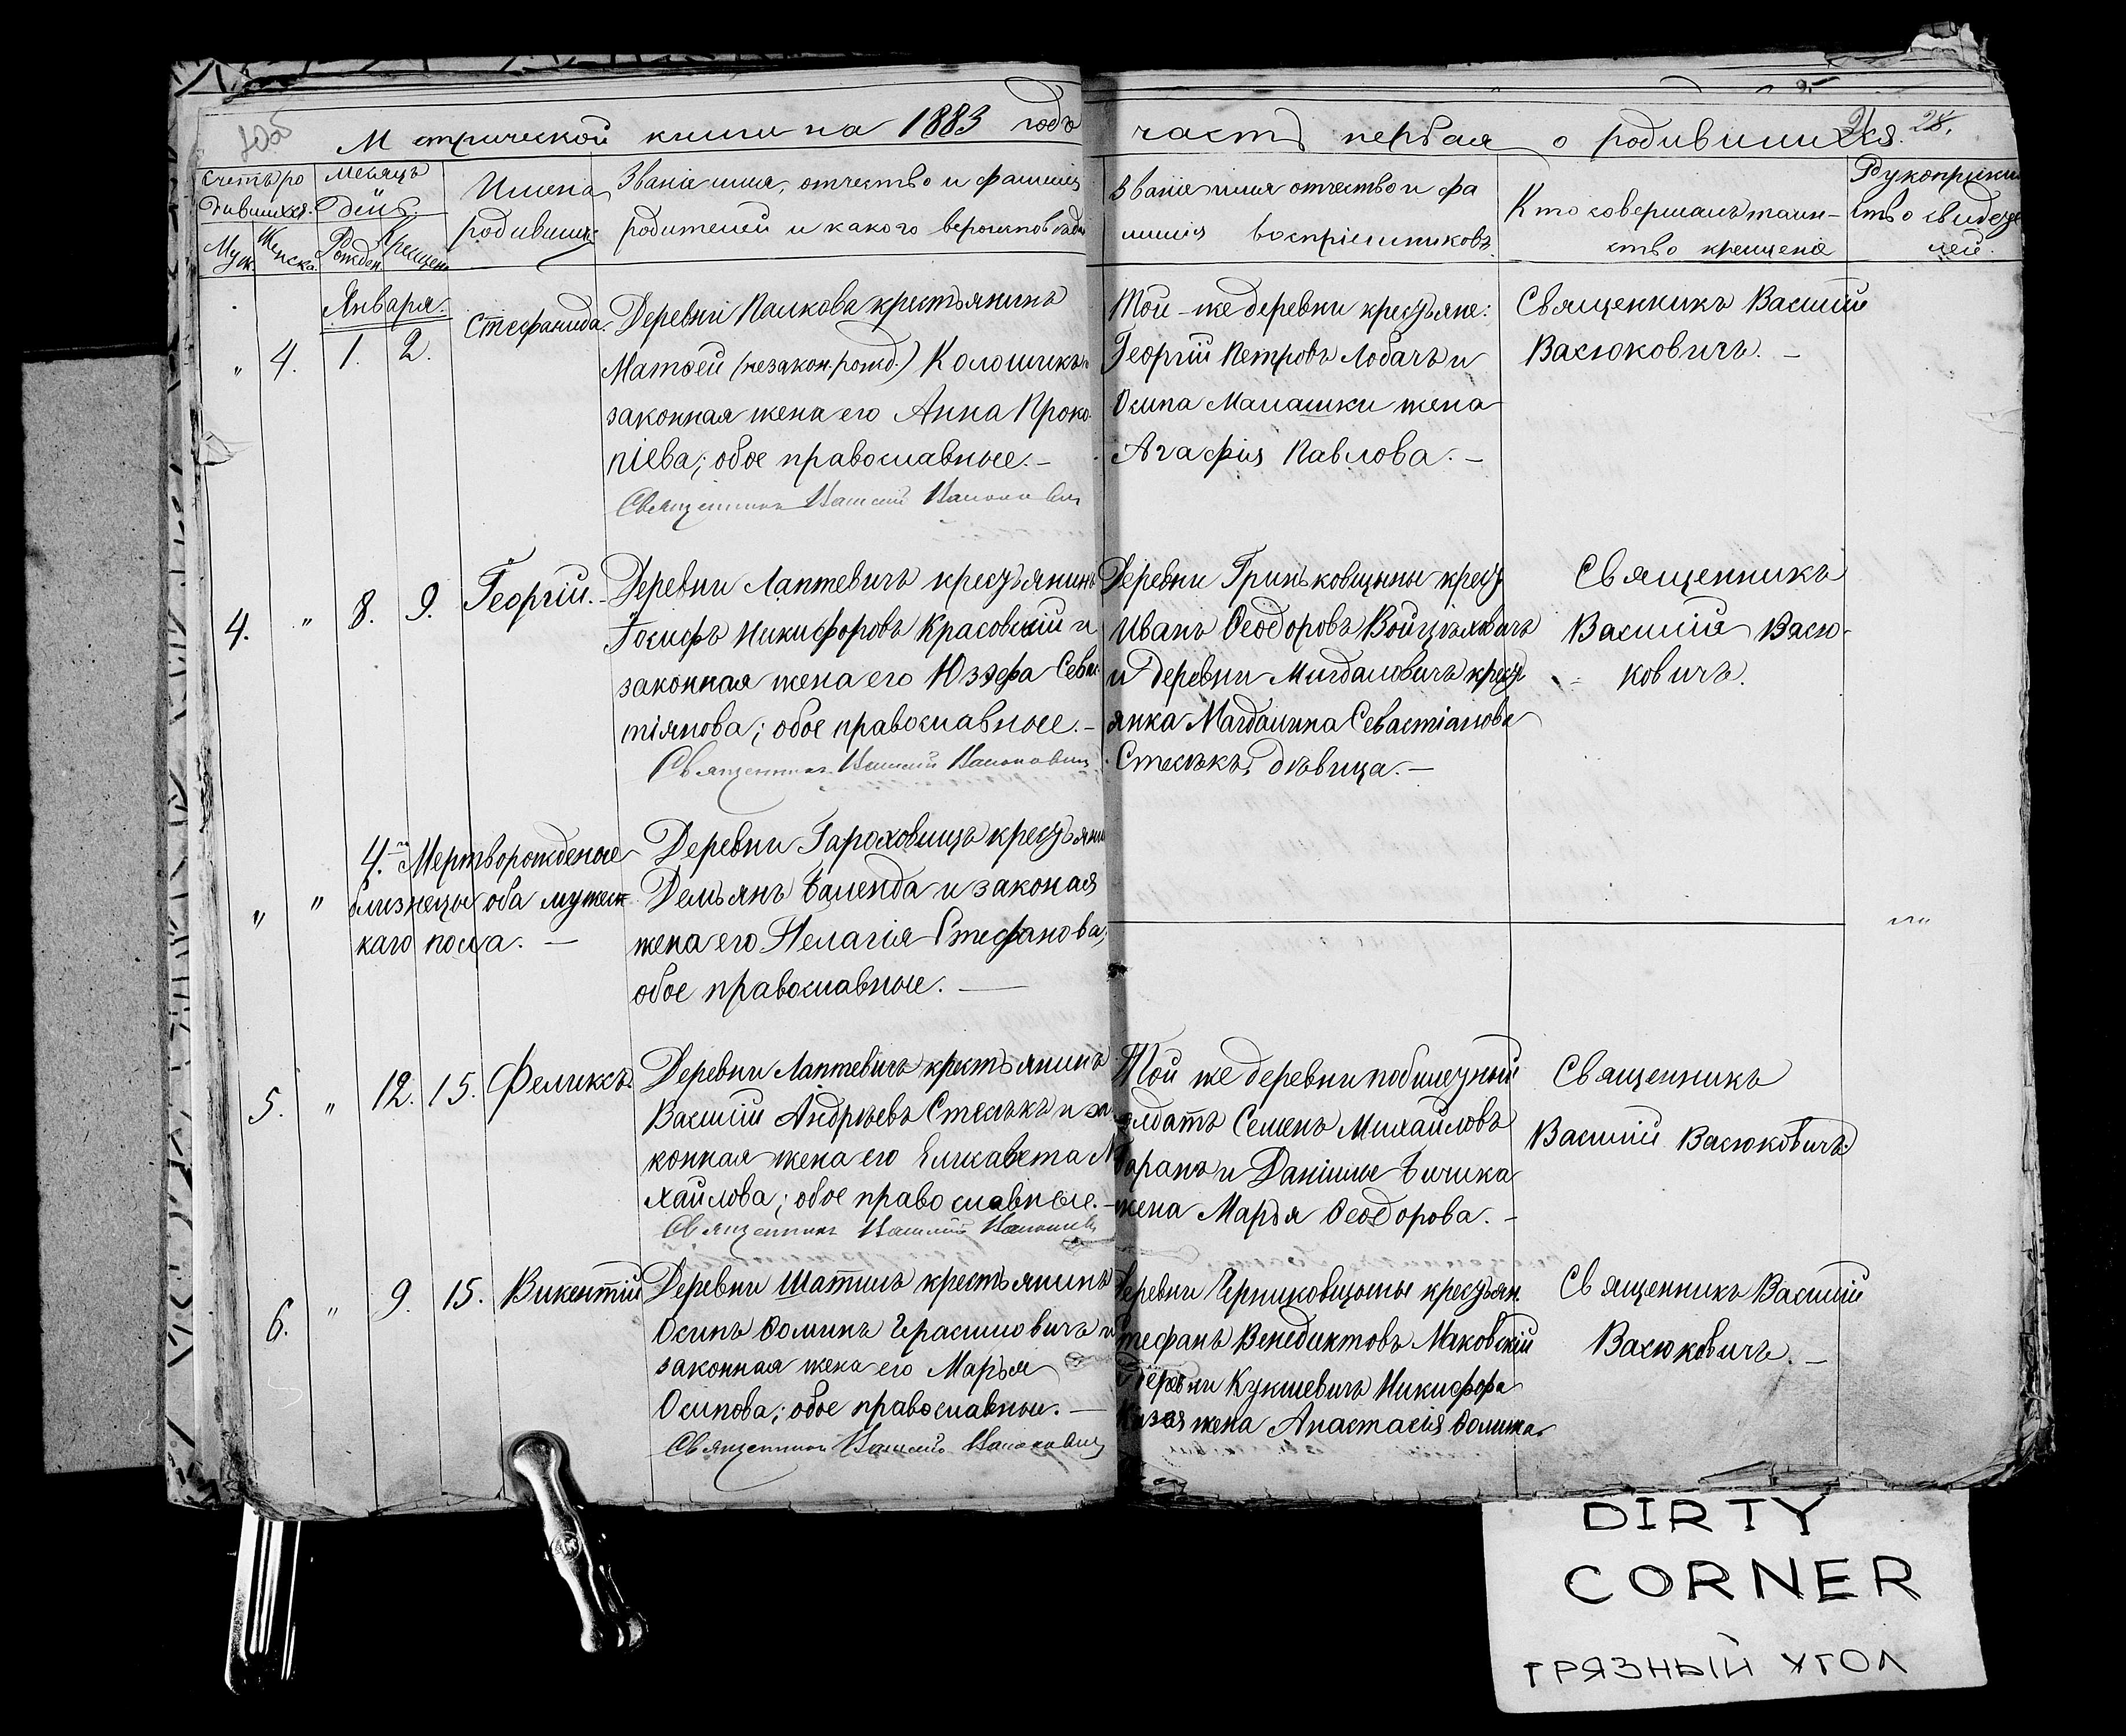 Метрической книги на 1883 годъ
часть первая о родившихся. 28.
Счетъ ро
дившихся.
Муж. Женска.
Месяцъ
День
Рожден. Крещен.
Имена
родивших.
Званіе имя, отчество и фамилія
родителей и какого вероисповедан
Званіе имя отчество и фа
милія воспріемниковъ.
Кто совершалъ таин-
ство крещенія
Рукоприклад
ство свидете
лей.
Января.
" 4. 1. 2. Стефанида.
Деревни Палкова крестьянинъ
Матѳей (незакон. рожд.) Колошикъ и
законная жена его Анна Проко
піева; обое православные. —
Священникъ Василій Васюковичъ
Той-же деревни крестьяне:
Георгій Петровъ Лобачъ и
Осипа Малашки жена
Агафія Павлова. —
Священникъ Василій
Васюковичъ. —
4. " 8. 9. Георгій.
Деревни Лаптевичъ крестьянинъ
Іосифъ Никифоровъ Красовскій и
законная жена его Юзэфа Севас
тіянова; обое православные. —
Священникъ Василій Васюковичъ
Деревни Гриньковщины крест
Иванъ Ѳеодоровъ Войцѣховичъ
и деревни Мигдаловичъ крест
янка Магдалина Севастіанова
Стесѣкъ, дѣвица. —
Священникъ
Василій Васю-
ковичъ.
" " 4. Мерторожденые
близнецы оба мужес
каго пола. —
Деревни Гароховищъ крестьянин
Демьянъ Баленда и законая
жена его Пелагія Стефанова;
обое православные. —
5. " 12. 15. Феликсъ.
Деревни Лаптевичъ крестьянинъ
Василій Андрѣевъ Стесѣкъ и за
конная жена его Елисавета М
хайлова; обое православные. —
Священникъ Василій Васюковичъ
Той же деревни побилетный
солдатъ Семенъ Михайловъ
Баранъ и Даніилы Бичика
жена Марья Ѳеодорова. —
Священникъ
Василій Васюковичъ.
6. " 9. 15. Викентій
Деревни Шатилъ крестьянинъ
Осипъ Ѳоминъ Герасимовичъ и
законная жена его Марья
Осипова; обое православные. —
Священникъ Василій Васюковичъ
Деревни Черниковщизны крестьян.
Стефанъ Венедиктовъ Маковскій
деревни Кукшевичъ Никифора
жена Анастасія Ѳомина
Священникъ Василій
Васюковичъ. —
DIRTY
CORNER
ГРЯЗНЫЙ УГОЛ